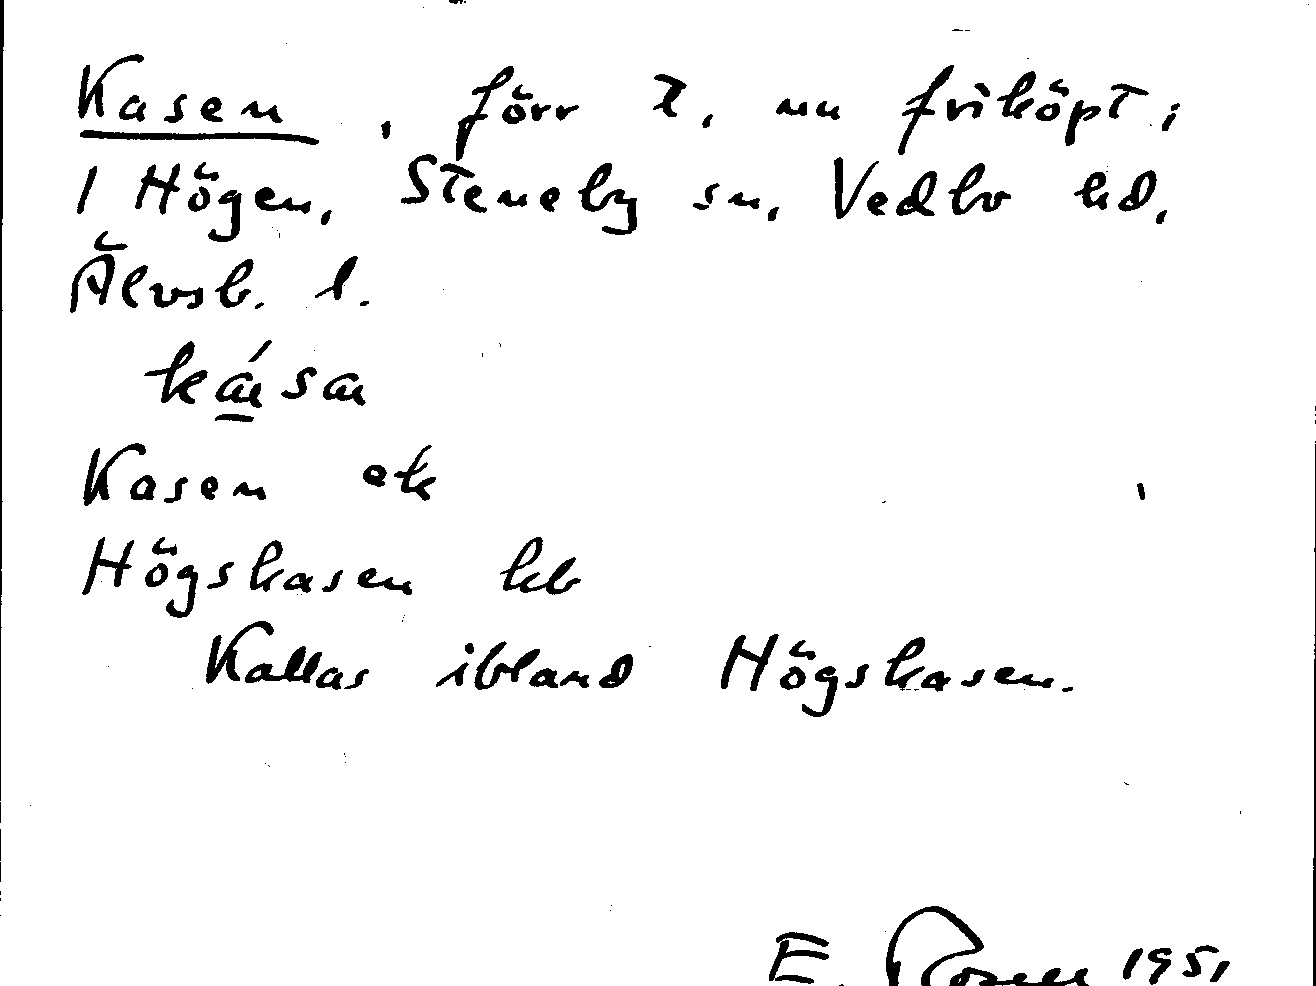 Kasen, förr t, nu friköpt;
1 Högen, Steneby sn, Vedbo hd,
Älvsb. l.
ká̱sa
Kasen ek
Högskasen kb
Kallas ibland Högskasen.
E. 1951